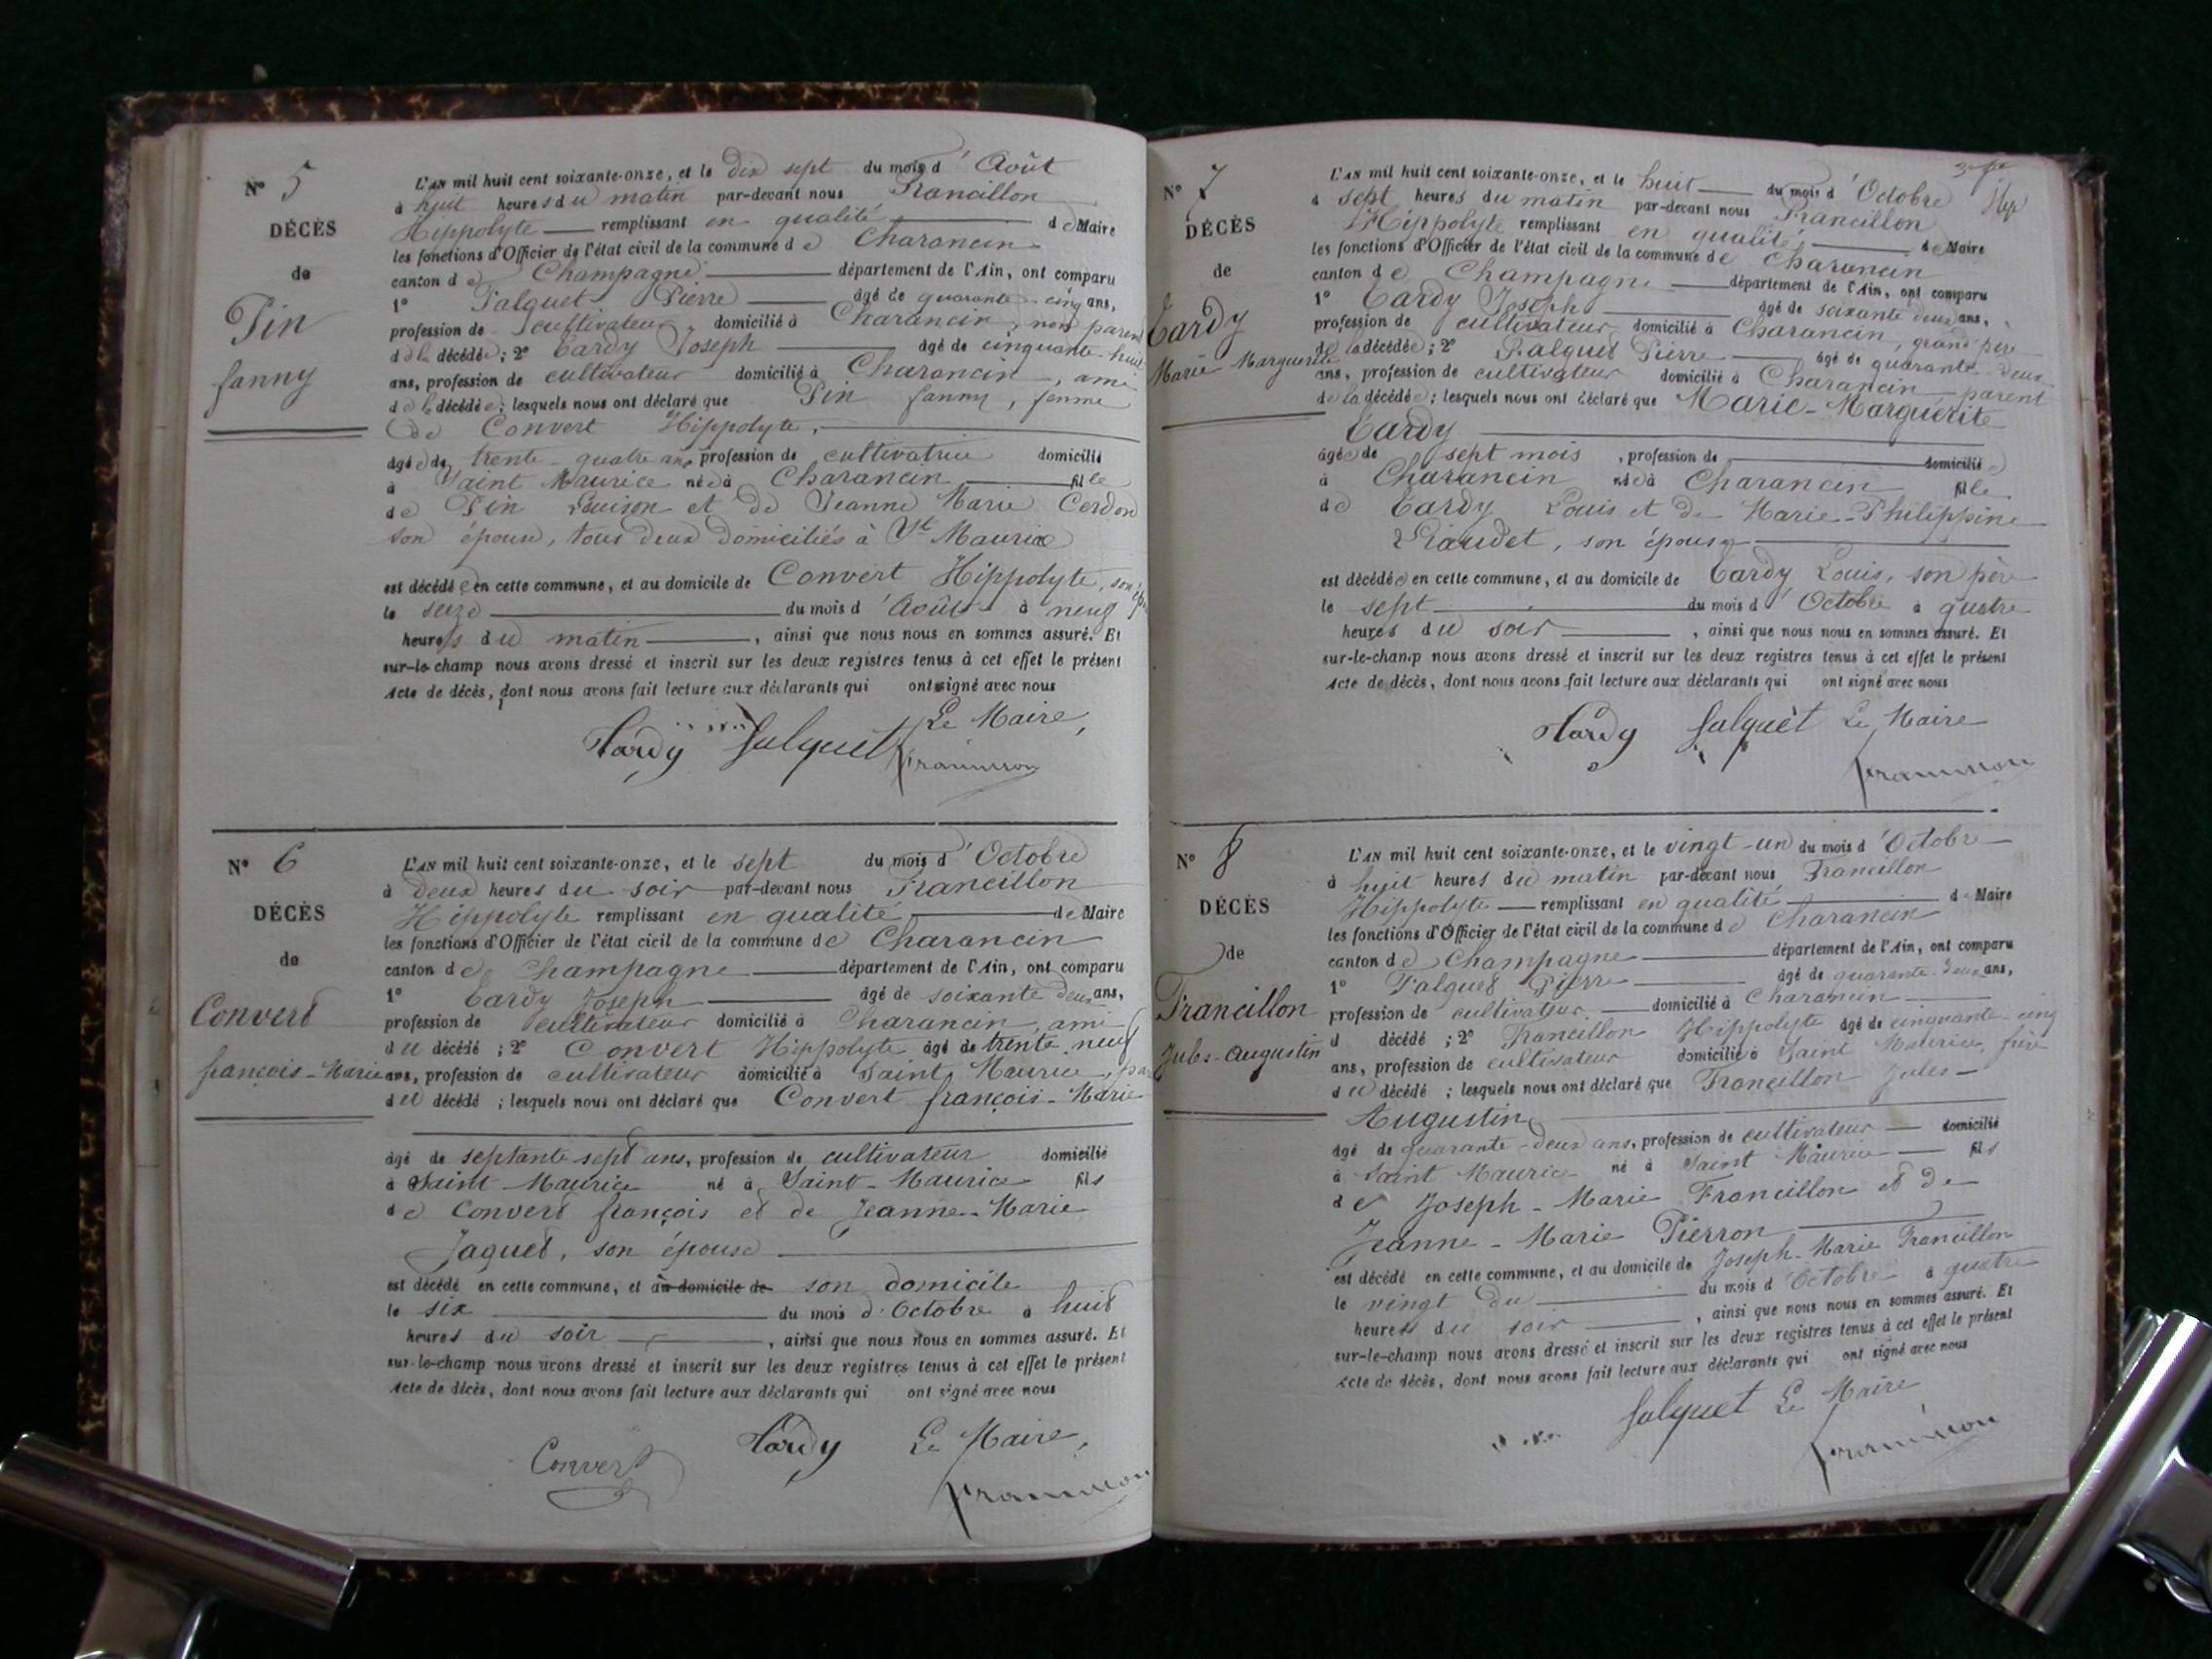 N° 5
DÉCÈS
de
Pin
fanny
L'AN mil huit cent soixante-onze, et le dix sept du mois d'Août
à huit heures du matin par-devant nous Francillon
Hippolyte remplissant en qualité de Maire
les fonctions d'Officier de l'état civil de la commune de Charancin
canton de Champagne département de l'Ain, ont comparu
1° Falquet Pierre âgé de quarante-cinq ans,
profession de cultivateur domicilié à Charancin, non parent
de la décédée; 2° Tardy Joseph âgé de cinquante-huit
ans, profession de cultivateur domicilié à Charancin, ami
de la décédée; lesquels nous ont déclaré que Pin fanny, femme
de Convert Hippolyte,
âgée de trente-quatre ans, profession de cultivatrice domicilié
à Saint Maurice née à Charancin fille
de Pin Louison et de Jeanne Marie Cerdon
son épouse, tous deux domiciliés à St Maurice
est décédée en cette commune, et au domicile de Convert Hippolyte, son
le seize du mois d'Août à neuf
heures du matin, ainsi que nous nous en sommes assuré. Et
sur-le-champ nous avons dressé et inscrit sur les deux registres tenus à cet effet le présent
Acte de décès, dont nous avons fait lecture aux déclarants qui ont signé avec nous
Tardy Falquet Le Maire,
Francillon
N° 6
DÉCÈS
de
Convert
françois-Marie
L'AN mil huit cent soixante-onze, et le sept du mois d'Octobre
à deux heures du soir par-devant nous Francillon
Hippolyte remplissant en qualité de Maire
les fonctions d'Officier de l'état civil de la commune de Charancin
canton de Champagne département de l'Ain, ont comparu
1° Tardy Joseph âgé de soixante deux ans,
profession de cultivateur domicilié à Charancin, ami
du décédé; 2° Convert Hippolyte âgé de trente-neuf
ans, profession de cultivateur domicilié à Saint Maurice,
du décédé; lesquels nous ont déclaré que Convert françois-Marie
âgé de septante sept ans, profession de cultivateur domicilié
à Saint-Maurice né à Saint-Maurice fils
de Convert françois et de Jeanne-Marie
Jaquet, son épouse
est décédé en cette commune, et au domicile de son domicile
le six du mois d'Octobre à huit
heures du soir, ainsi que nous nous en sommes assuré. Et
sur-le-champ nous avons dressé et inscrit sur les deux registres tenus à cet effet le présent
Acte de décès, dont nous avons fait lecture aux déclarants qui ont signé avec nous
Convert Tardy Le Maire,
Francillon
N° 7
DÉCÈS
de
Tardy
Marie-Marguerite
L'AN mil huit cent soixante-onze, et le huit du mois d'Octobre
à sept heures du matin par-devant nous Francillon
Hippolyte remplissant en qualité de Maire
les fonctions d'Officier de l'état civil de la commune de Charancin
canton de Champagne département de l'Ain, ont comparu
1° Tardy Joseph âgé de soixante deux ans,
profession de cultivateur domicilié à Charancin, grand père
de la décédée; 2° Falquet Pierre âgé de quarante-deux
ans, profession de cultivateur domicilié à Charancin parent
de la décédée; lesquels nous ont déclaré que Marie-Marguérite
Tardy
âgée de sept mois, profession de domicilié
à Charancin née à Charancin fille
de Tardy Louis et de Marie-Philippine
Liaudet, son épouse
est décédée en cette commune, et au domicile de Tardy Louis, son père
le sept du mois d'Octobre à quatre
heures du soir, ainsi que nous nous en sommes assuré. Et
sur-le-champ nous avons dressé et inscrit sur les deux registres tenus à cet effet le présent
Acte de décès, dont nous avons fait lecture aux déclarants qui ont signé avec nous
Tardy Falquet Le Maire
Francillon
N° 8
DÉCÈS
de
Francillon
Jules-Augustin
L'AN mil huit cent soixante-onze, et le vingt-un du mois d'Octobre
à huit heures du matin par-devant nous Francillon
Hippolyte remplissant en qualité de Maire
les fonctions d'Officier de l'état civil de la commune de Charancin
canton de Champagne département de l'Ain, ont comparu
1° Falquet Pierre âgé de quarante-deux ans,
profession de cultivateur domicilié à Charancin
d décédé; 2° Francillon Hippolyte âgé de cinquante-cinq
ans, profession de cultivateur domicilié à Saint Maurice, frère
du décédé; lesquels nous ont déclaré que Francillon Jules-
Augustin
âgé de quarante-deux ans, profession de cultivateur domicilié
à Saint Maurice né à Saint Maurice fils
de Joseph-Marie Francillon et de
Jeanne-Marie Pierron
est décédé en cette commune, et au domicile de Joseph-Marie Francillon
le vingt du du mois d'Octobre à quatre
heures du soir, ainsi que nous nous en sommes assuré. Et
sur-le-champ nous avons dressé et inscrit sur les deux registres tenus à cet effet le présent
Acte de décès, dont nous avons fait lecture aux déclarants qui ont signé avec nous
Falquet Le Maire
Francillon